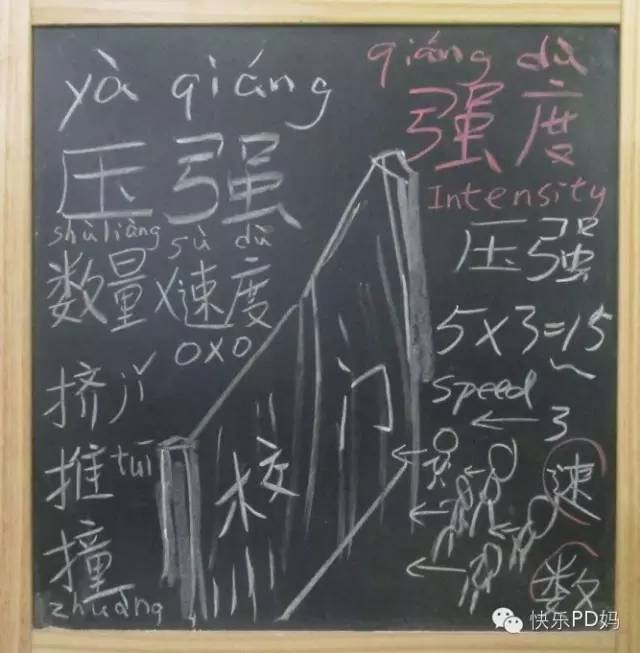 yà qiáng
压强
shùliàng sù dù
数量×速度
0×0
挤jǐ
推tuī
撞
zhuàng
校门
qiáng dù
强度
Intensity
压强
5×3=15
speed
← 3
速
数
快乐PD妈